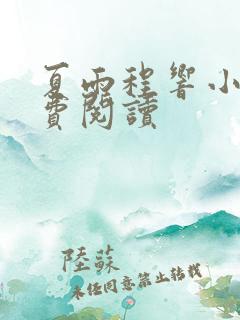 夏雨程響小
費閱讀
陸蘇
未經同意禁止轉載